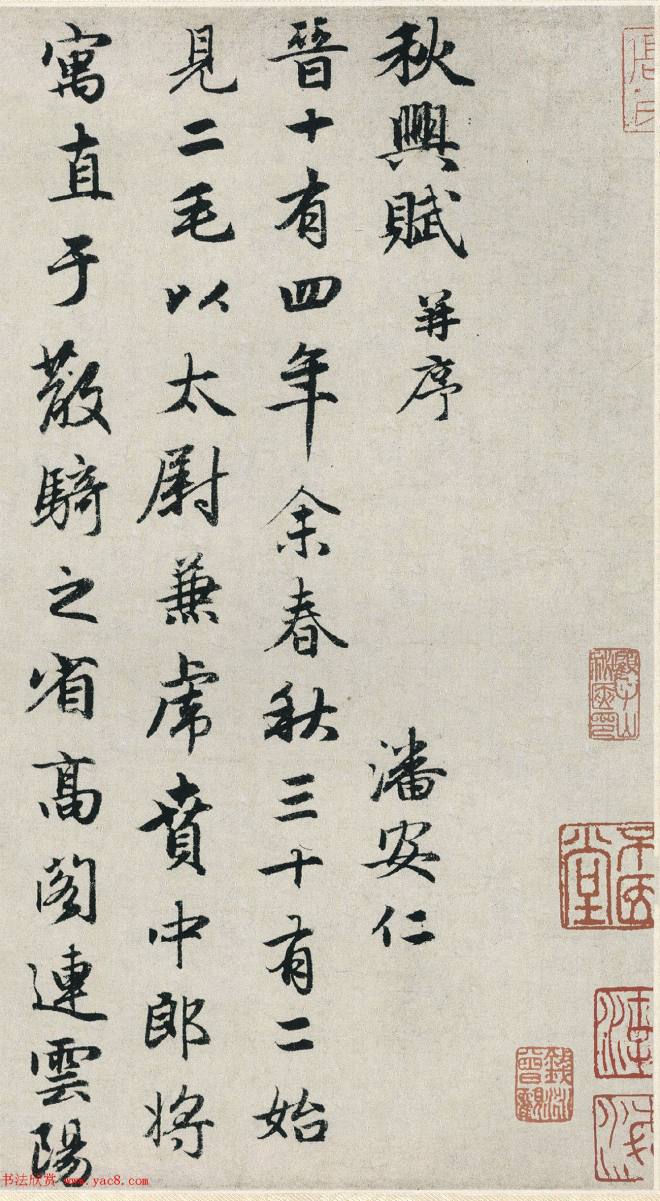 秋興賦 并序
潘安仁
晉十有四年余春秋三十有二始
見二毛以太尉兼虎賁中郎將
寓直于散騎之省高閣連雲陽
书法欣赏 www.yac8.com